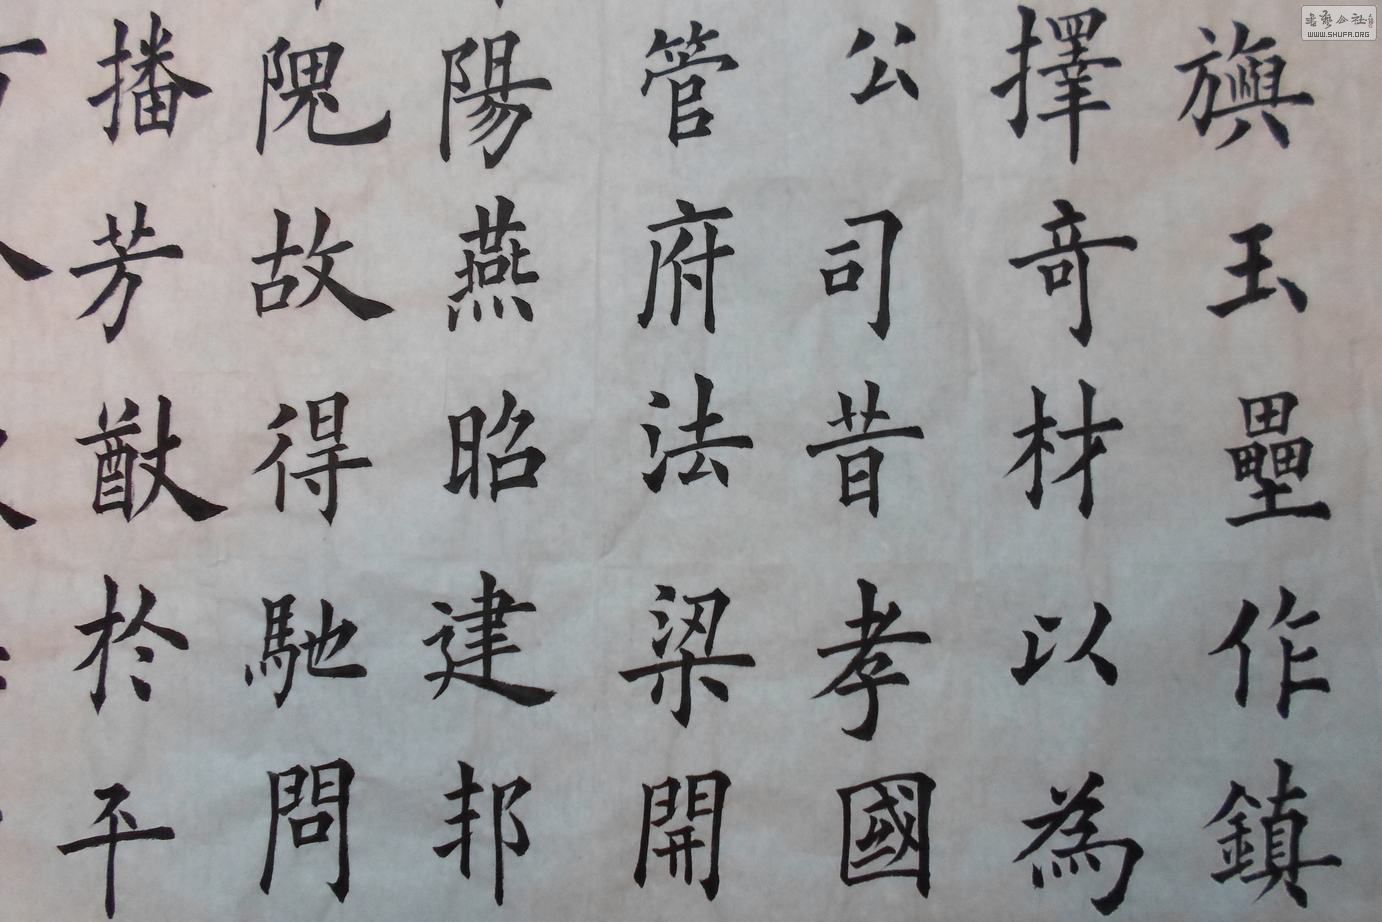 旟玉壘作鎮
擇奇材以為
公司昔孝國
管府法梁開
陽燕昭建邦
隗故得馳問
播芳猷於平
WWW.SHUFA.ORG